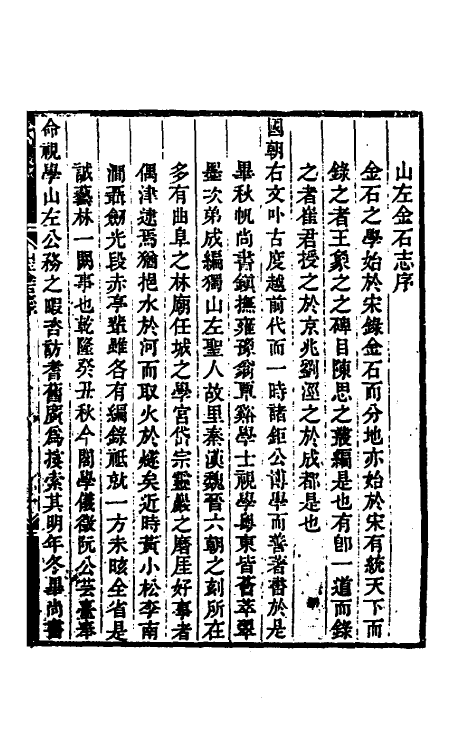 山左金石志序
金石之學始於宋錄金石而分地亦始於宋有統天下而
錄之者王象之之碑目陳思之叢編是也有卽一道而錄
之者崔君授之於京兆劉涇之於成都是也
國朝右文卟古度越前代而一時諸鉅公博學而善著書於是
畢秋帆尚書鎮撫雍豫翁覃谿學士視學粵東皆薈萃翠
墨次弟成編獨山左聖人故里秦漢魏晉六朝之刻所在
多有曲阜之林廟任城之學宮岱宗靈巖之磨厓好事者
偶津逮焉猶挹水於河而取火於燧矣近時黃小松李南
澗聶劍光段赤亭輩雖各有編錄祇就一方未晐全省是
誠藝林一闕事也乾隆癸丑秋今閣學儀徵阮公芸臺奉
命視學山左公務之暇咨訪耆舊廣爲搜索其明年冬畢尚書